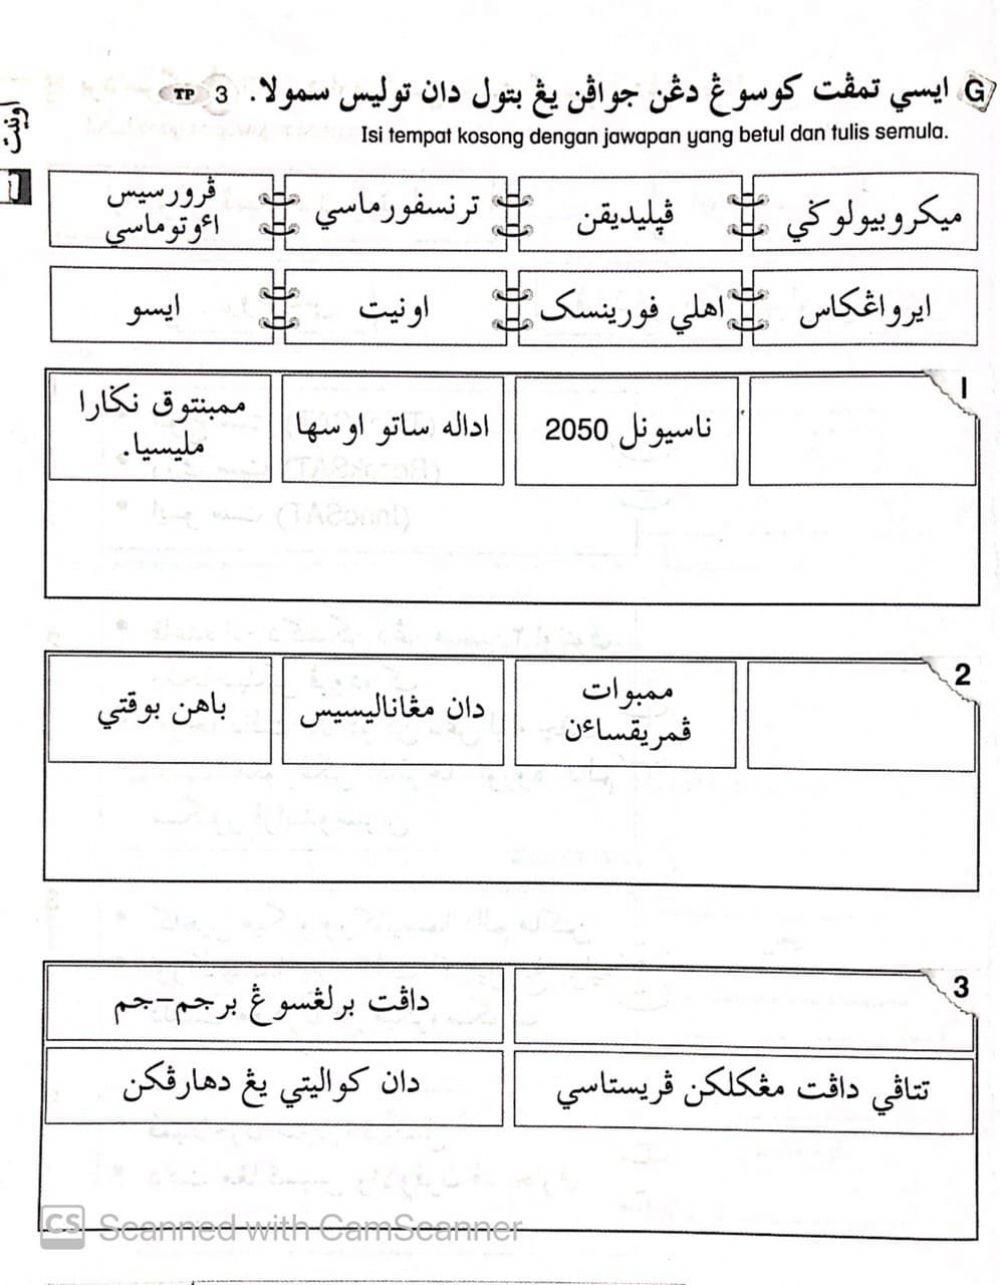 G ايسي تمڤت كوسوڠ دڠن جواڤن يڠ بتول دان توليس سمولا. 3 TP
Isi tempat kosong dengan jawapan yang betul dan tulis semula.
اونيت
ميكروبيولوݢي
ڤڽليديقن
ترنسفورماسي
ڤرورسيس
اءوتوماسي
ايرواڠكاس
اهلي فورينسک
اونيت
ايسو
1
ناسيونل 2050
اداله ساتو اوسها
ممبنتوق نݢارا
مليسيا.
2
ممبوات
ڤمريقساءن
دان مڠاناليسيس
باهن بوقتي
3
داڤت برلڠسوڠ برجم-جم
تتاڤي داڤت مڠكلكن ڤريستاسي
دان كواليتي يڠ دهارڤكن
CS Scanned with CamScanner